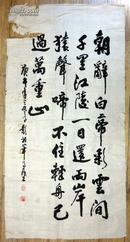 朝辭白帝彩雲間
千里江陵一日還兩岸
猿聲啼不住輕舟已
過萬重山